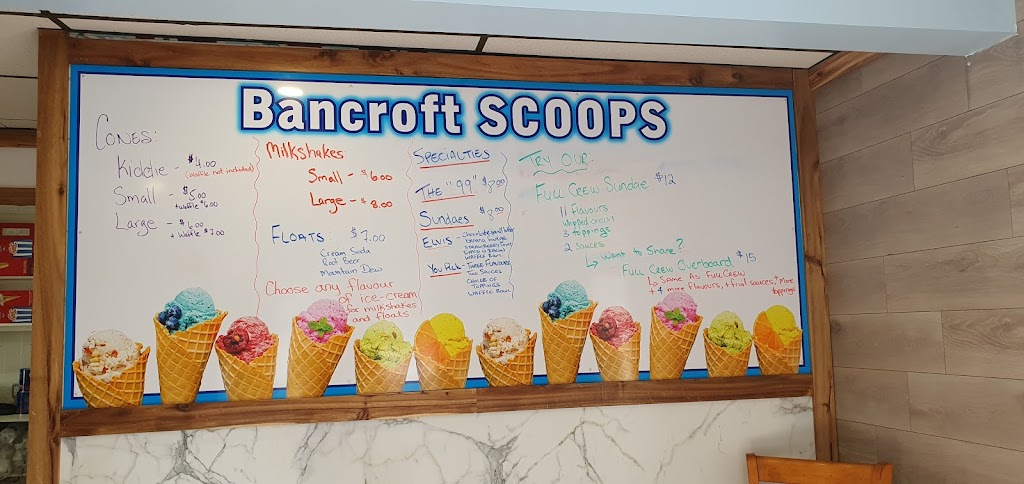 Bancroft SCOOPS
CONES:
Kiddie - $4.00
(waffle not included)
Small - $5.00
+waffle $6.00
Large - $6.00
+ waffle $7.00
Milkshakes
Small - $6.00
Large - $8.00
FLOATS $7.00
Cream Soda
Root Beer
Mountain Dew
Choose any flavour
of ice-cream
for milkshakes
and floats
SPECIALTIES
THE "99"
Sundaes
ELVIS - chocolate
banana fudge
WAFFLE BOWL
YOU PICK - THREE FLAVOURS
TWO SAUCES
CHOICE OF
TOPPINGS
WAFFLE BOWL
TRY OUR:
FULL CREW Sundae $12
11 Flavours
whipped cream
3 toppings
2 sauces
↳ Want to Share?
FULL CREW Overboard $15
↳ SAME AS FULL CREW
+ 4 more Flavours, + fruit sauces, + more
toppings